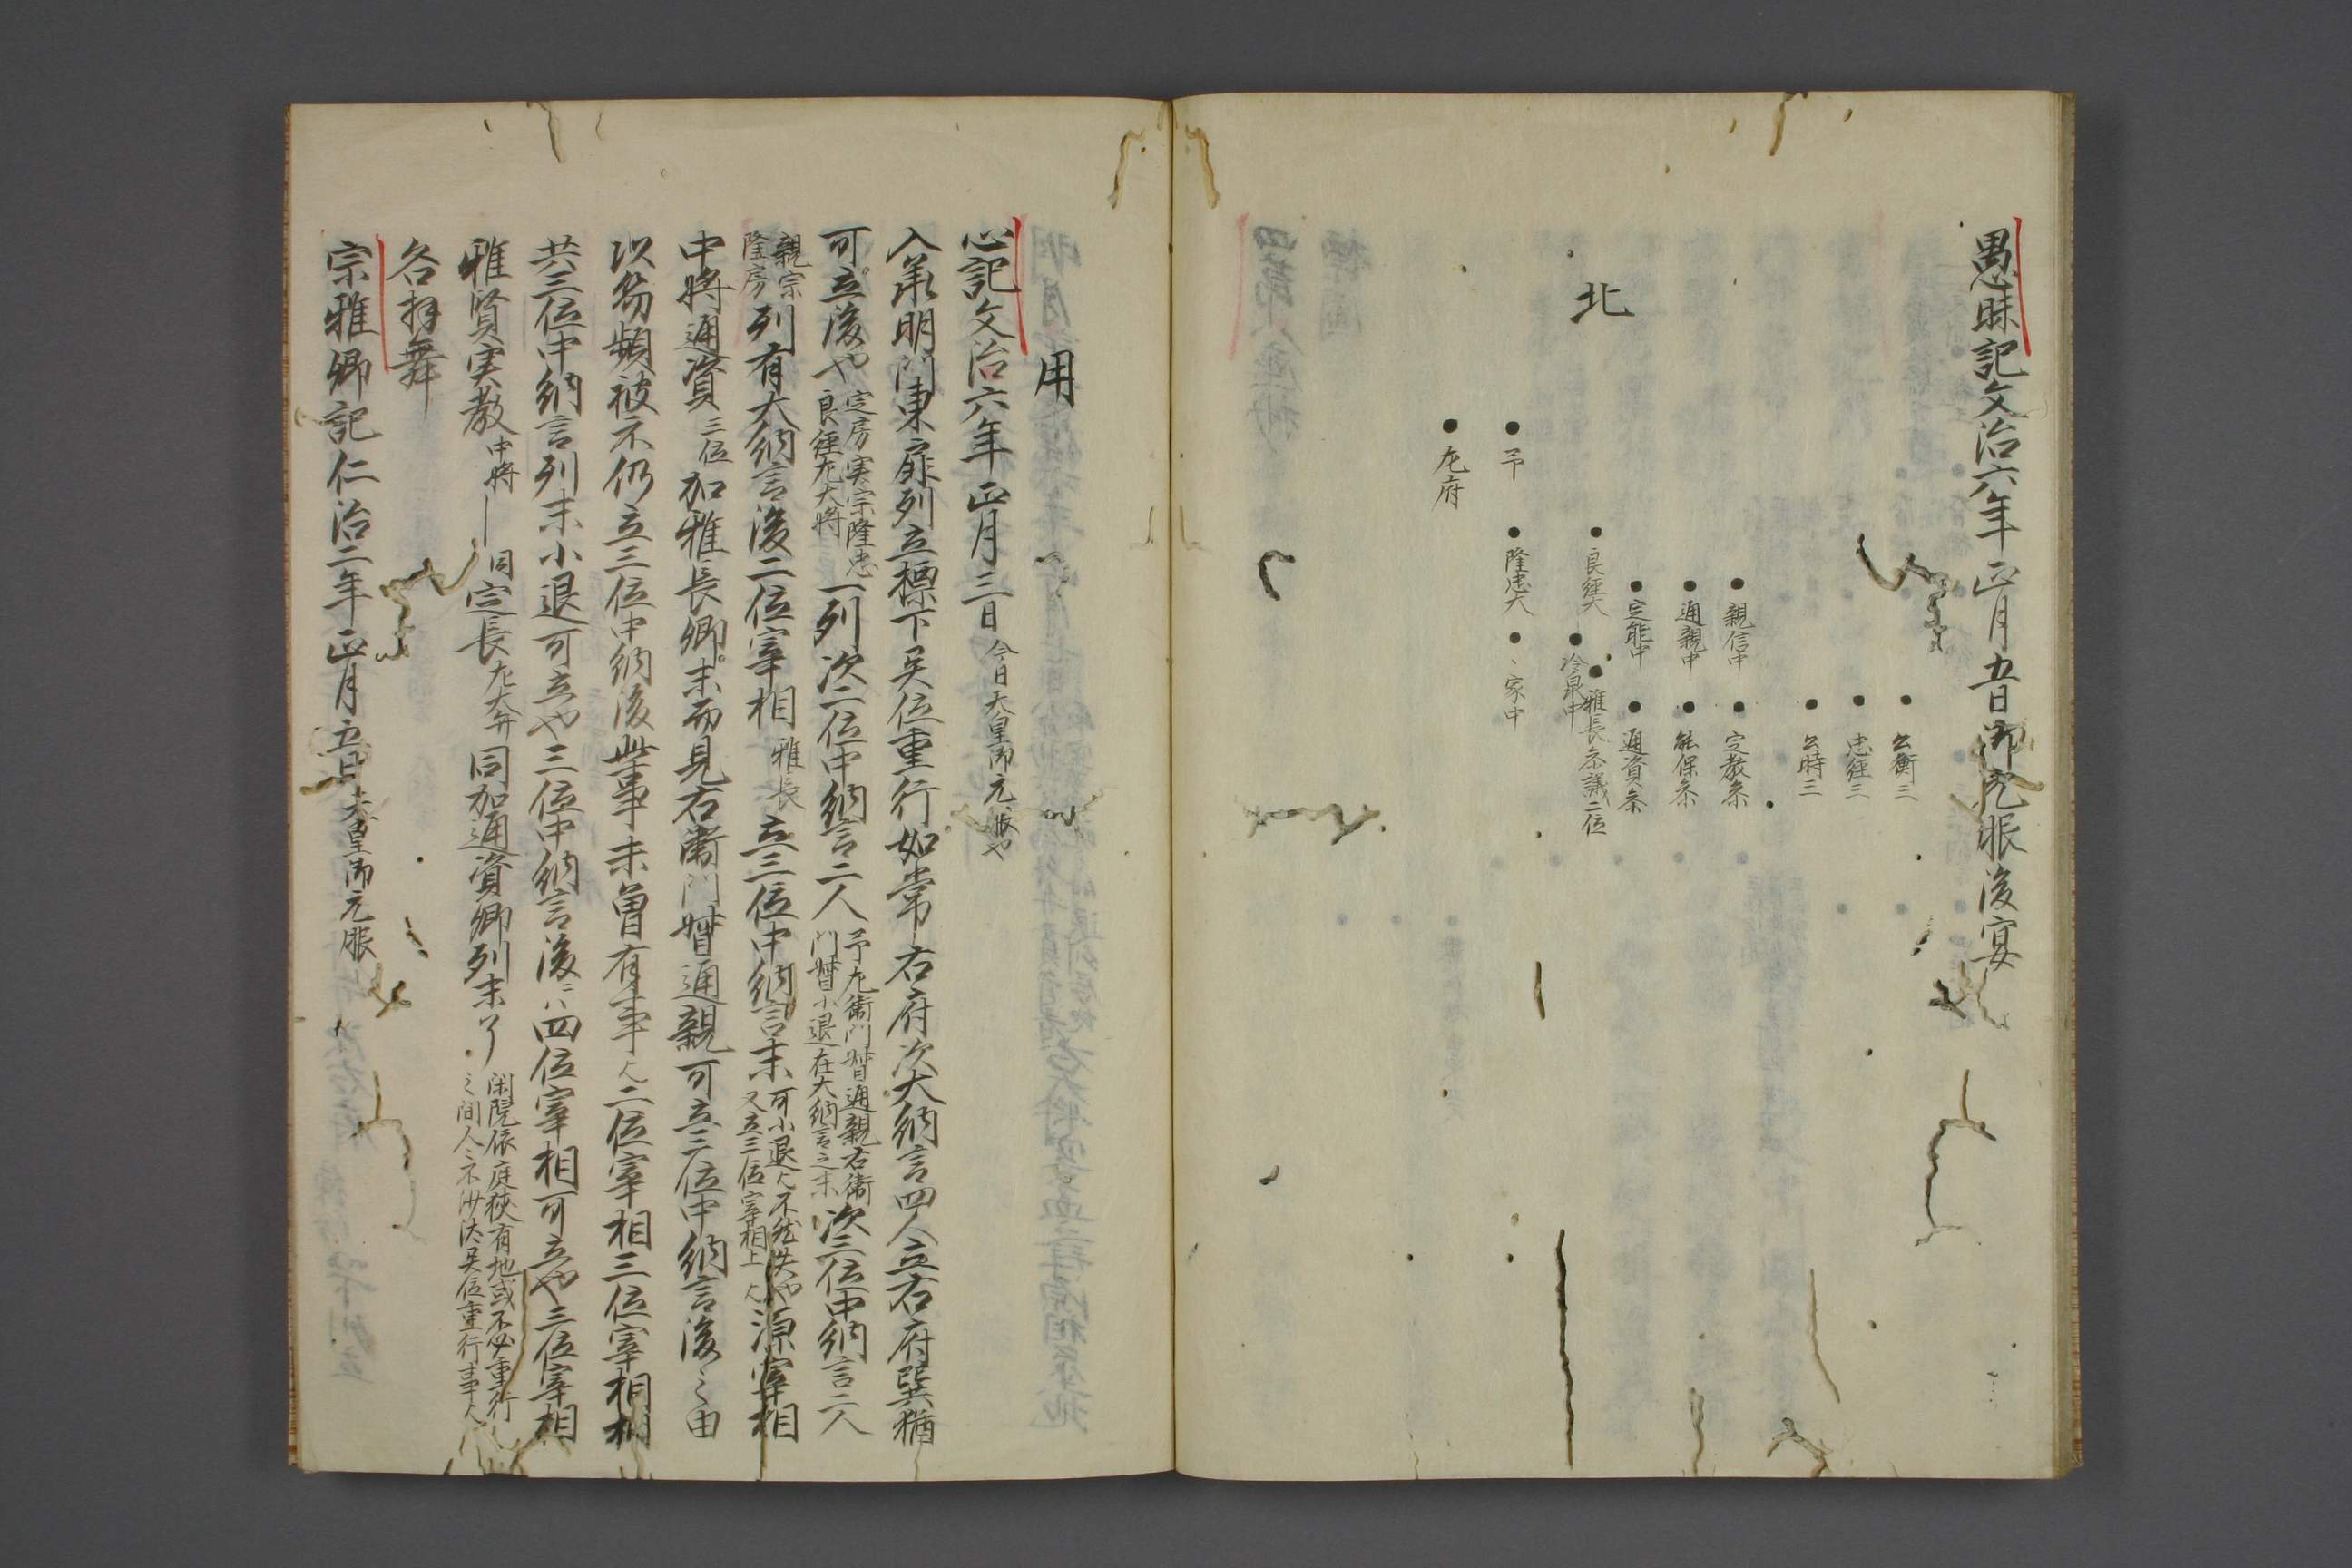 愚昧記文治六年正月五日御元服後宴
北
公衡三
忠経三
公時三
親信中
定教参
通親中
能保参
定能中
通資参
良経大
雅長参議二位
冷泉中
予
隆忠大
〻家中
左府
用
心記文治六年正月三日今日天皇御元服也
入承明門東扉列立標下異位重行如常右府次大納言四人立右府巽猶
可立後也定房実宗隆忠良経左大将一列次二位中納言二人予左衛門督通親右衛門督小退在大納言之末次三位中納言二人
親宗隆房列有大納言後二位宰相雅長立三位中納言末可小退欤不然失也又立三位宰相上欤源宰相
中将通資三位加雅長卿末而見右衛門督通親可立三位中納言後之由
以笏頻被示仍立三位中納後此事未曽有事欤二位宰相三位宰相相
共三位中納言列末小退可立也三位中納言後ニハ四位宰相可立也三位宰相
雅賢実教中将同定長左大弁同加通資卿列末了閑院依庭狭有地或不必重行之間人〻不沙汰異位重行事欤
各拝舞
宗雅卿記仁治二年正月五日天皇御元服